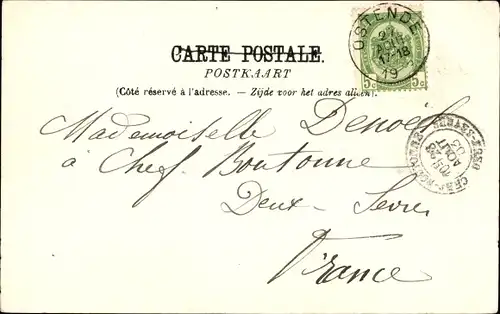 CARTE POSTALE.
POSTKAART
(Côté réservé à l'adresse. — Zijde voor het adres alleen).
OSTENDE
21
AOUT
17-18
19
5c 5c
Mademoiselle Denoël
à Chef Boutonne
Deux-Sèvres
France
AOUT
03